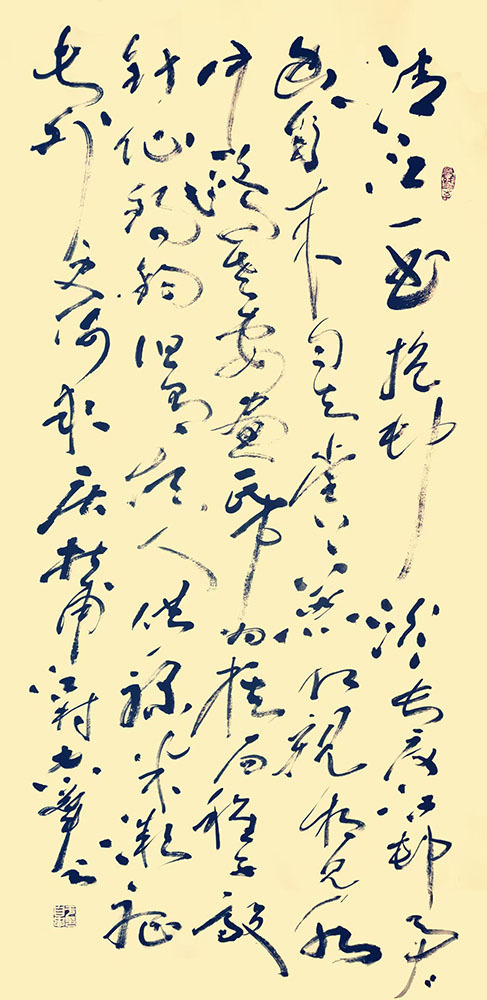 清江一曲抱村流長夏江村事々
幽自来自去堂上燕相親相近水
中鷗老妻畫紙为棋局稚子敲
針作釣鈎但有故人供禄米微躯
此外更何求录杜甫江村